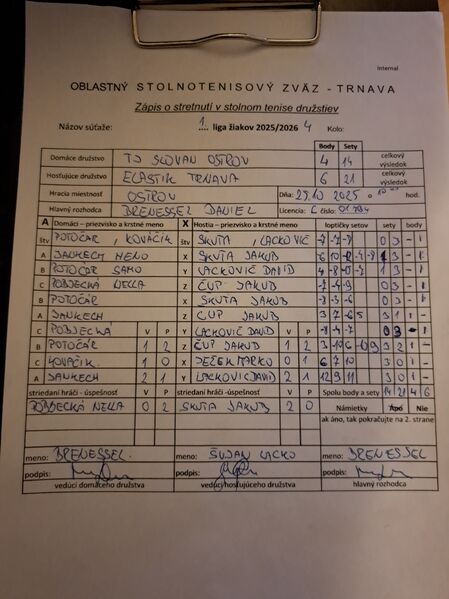 Internal
OBLASTNÝ STOLNOTENISOVÝ ZVÄZ - TRNAVA
Zápis o stretnutí v stolnom tenise družstiev
Názov súťaže: 1. liga žiakov 2025/2026 4 Kolo:
Body Sety
Domáce družstvo TJ SLOVAN OSTROV 4 14 celkový výsledok
Hosťujúce družstvo ELASTIK TRNAVA 6 21 celkový výsledok
Hracia miestnosť OSTROV Dňa: 25.10 2025 o hod.
Hlavný rozhodca DRENESSEL DANIEL Licencia: C číslo:
A Domáci - priezvisko a krstné meno X Hostia - priezvisko a krstné meno loptičky setov sety body
štv POTOČÁR, KOVÁČIK štv SKUTA, LACKOVIČ 0 3 - 1
A DANKECH NENO X SKUTA JAKUB 3 - 1
B POTOČÁR SAMO Y LACKOVIČ DAVID 1 3 - 1
C POBJECKÁ NELLA Z ČUP JAKUB -7 -4 -9 0 3 - 1
B POTOČÁR X SKUTA JAKUB -8 -3 -6 0 3 - 1
A DANKECH Z ČUP JAKUB 3 1 1 -
C POBJECKÁ V P Y LACKOVIČ DAVID V P -8 -4 -7 0 3 - 1
B POTOČÁR 1 2 Z ČUP JAKUB 1 2 3 2 1 -
C KOVÁČIK 1 0 X JEŽEK MARKO 0 1 6 7 10 3 0 1 -
A DANKECH 2 1 Y LACKOVIČ DAVID 2 1 12 9 11 3 0 1 -
striedaní hráči - úspešnosť V P striedaní hráči - úspešnosť V P Spolu body a sety 14 21 4 6
POBJECKÁ NELLA 0 2 SKUTA JAKUB 2 0 Námietky Áno Nie
ak áno, tak pokračujte na 2. strane
meno: DRENESSEL meno: ŠUJAN LACKO meno: DRENESSEL
podpis: podpis: podpis:
vedúci domáceho družstva vedúci hosťujúceho družstva hlavný rozhodca